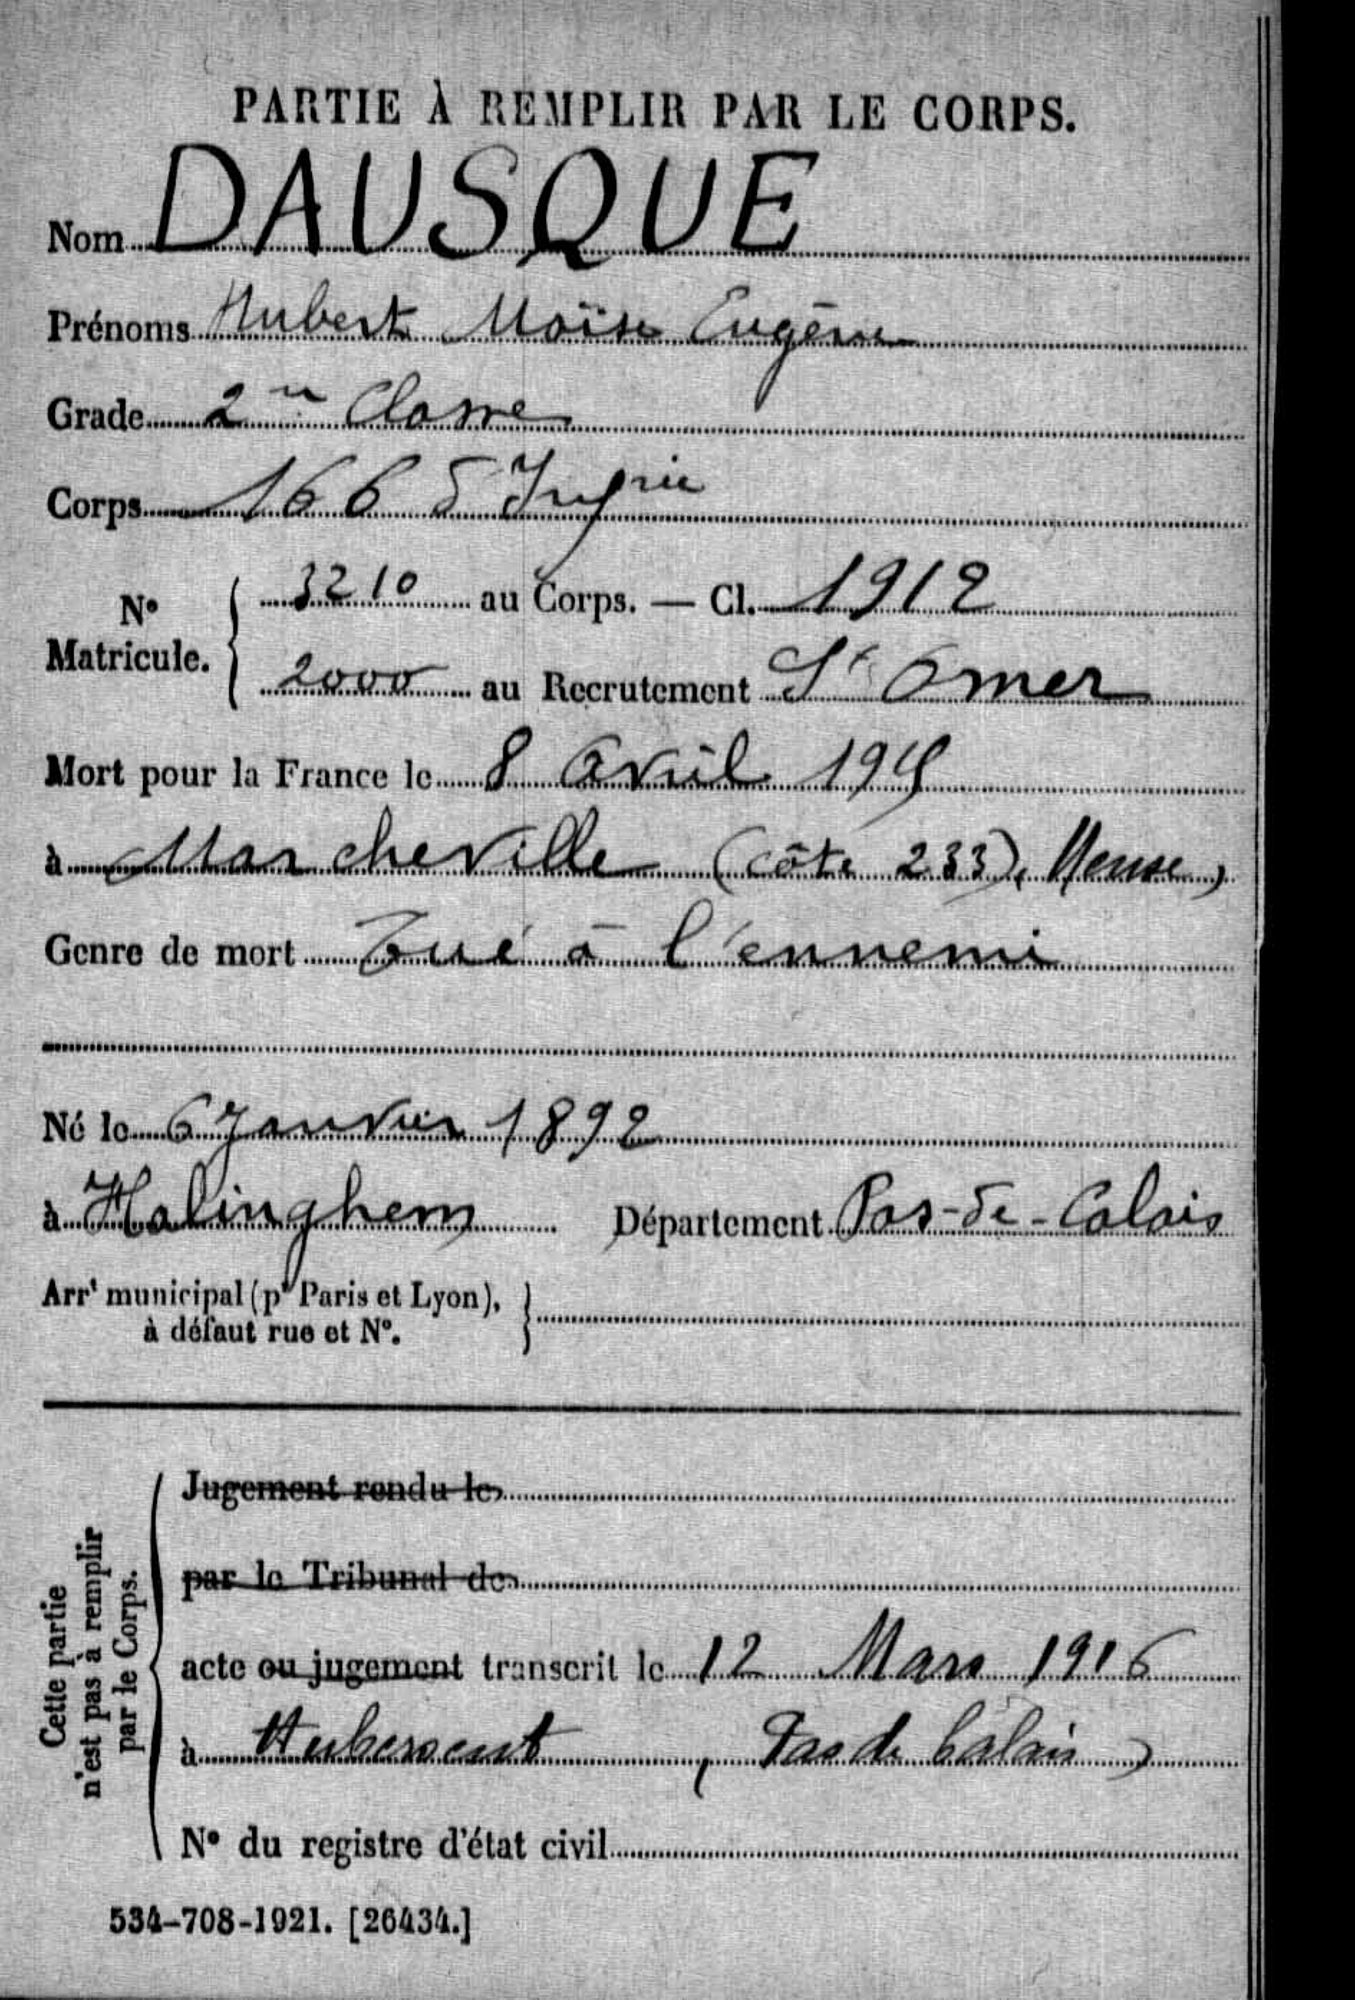 PARTIE À REMPLIR PAR LE CORPS.
Nom DAUSQUE
Prénoms Hubert Moïse Eugène
Grade 2e Classe
Corps 166 d'Infrie
No Matricule. { 3210 au Corps. — Cl. 1912
2000 au Recrutement St Omer
Mort pour la France le 8 Avril 1915
à Marcheville (côte 233), Meuse,
Genre de mort Tué à l'ennemi
Né le 6 Janvier 1892
à Halinghem Département Pas-de-Calais
Arrt municipal (pr Paris et Lyon),
à défaut rue et No. }
Cette partie
n'est pas à remplir
par le Corps.
Jugement rendu le
par le Tribunal de
acte ou jugement transcrit le 12 Mars 1916
à Hubersent (Pas de Calais)
No du registre d'état civil
534-708-1921. [26434.]